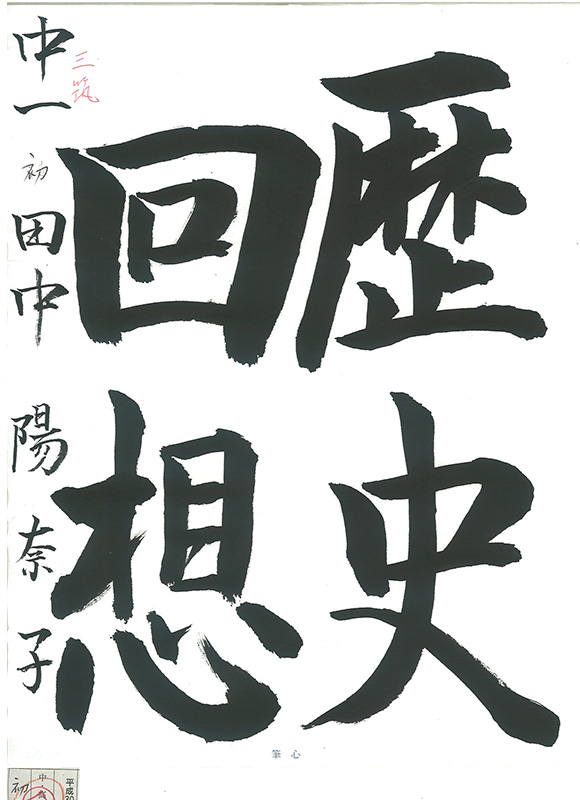 歴史
回想
中一 初 田中 陽奈子
三筑
心筆
平成30
中
初